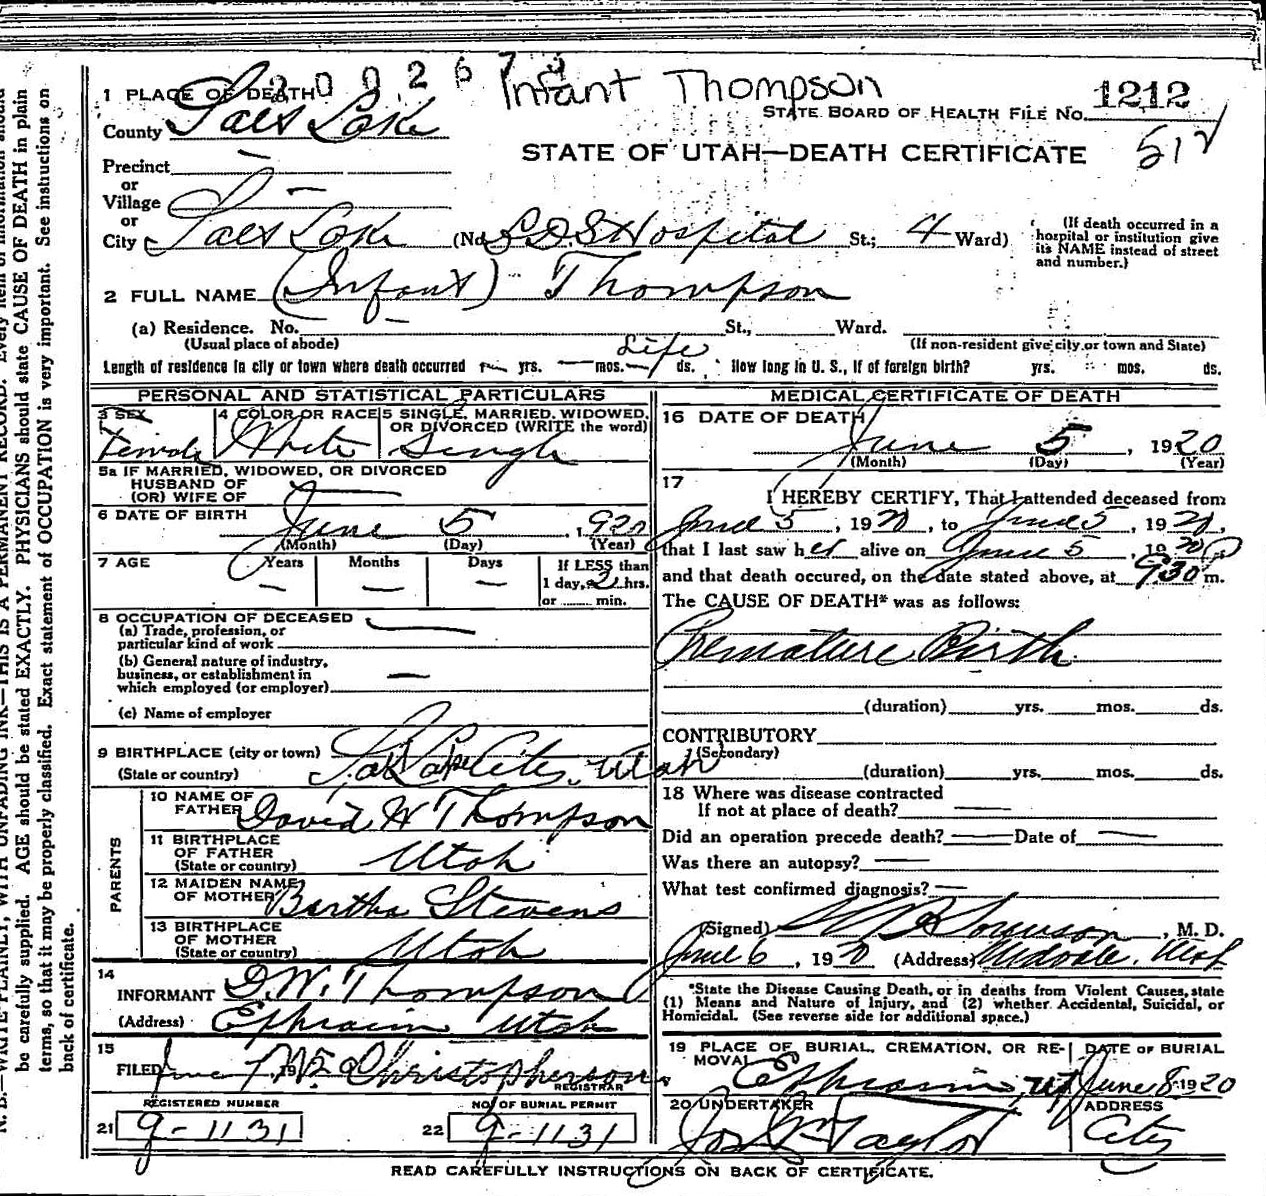 2 0 0 2 6 7 3
Infant Thompson
1 PLACE OF DEATH
STATE BOARD OF HEALTH FILE No. 1212
County Salt Lake
STATE OF UTAH—DEATH CERTIFICATE
512
Precinct
or
Village
or
City Salt Lake (No. L.D.S Hospital St.; 4 Ward)
(If death occurred in a
hospital or institution give
its NAME instead of street
and number.)
2 FULL NAME (Infant) Thompson
(a) Residence. No. St., Ward.
(Usual place of abode) (If non-resident give city or town and State)
Length of residence in city or town where death occurred — yrs. — mos. — Life ds. How long in U. S., if of foreign birth? yrs. mos. ds.
PERSONAL AND STATISTICAL PARTICULARS
3 SEX Female
4 COLOR OR RACE White
5 SINGLE, MARRIED, WIDOWED,
OR DIVORCED (WRITE the word)
Single
5a IF MARRIED, WIDOWED, OR DIVORCED
HUSBAND OF
(OR) WIFE OF —
6 DATE OF BIRTH June 5, 1920
(Month) (Day) (Year)
7 AGE Years Months Days If LESS than
— — — 1 day, 2 hrs.
or min.
8 OCCUPATION OF DECEASED —
(a) Trade, profession, or
particular kind of work
(b) General nature of industry,
business, or establishment in
which employed (or employer) —
(c) Name of employer
9 BIRTHPLACE (city or town) Salt Lake City, Utah
(State or country)
PARENTS
10 NAME OF
FATHER David W Thompson
11 BIRTHPLACE
OF FATHER Utah
(State or country)
12 MAIDEN NAME
OF MOTHER Bertha Stevens
13 BIRTHPLACE
OF MOTHER Utah
(State or country)
14
INFORMANT D.W. Thompson
(Address) Ephraim Utah
15
FILED June 7, 19 Christopherson
REGISTRAR
REGISTERED NUMBER NO. OF BURIAL PERMIT
21 9-1131 22 9-1131
MEDICAL CERTIFICATE OF DEATH
16 DATE OF DEATH
June 5, 1920
(Month) (Day) (Year)
17
I HEREBY CERTIFY, That I attended deceased from
June 5, 1920, to June 5, 1920,
that I last saw her alive on June 5, 1920
and that death occured, on the date stated above, at 930 P m.
The CAUSE OF DEATH* was as follows:
Premature Birth
(duration) yrs. mos. ds.
CONTRIBUTORY
(Secondary)
(duration) yrs. mos. ds.
18 Where was disease contracted
If not at place of death? —
Did an operation precede death? — Date of —
Was there an autopsy? —
What test confirmed diagnosis? —
(Signed) , M. D.
June 6, 1920 (Address) Midvale, Utah
*State the Disease Causing Death, or in deaths from Violent Causes, state
(1) Means and Nature of Injury, and (2) whether Accidental, Suicidal, or
Homicidal. (See reverse side for additional space.)
19 PLACE OF BURIAL, CREMATION, OR RE-
MOVAL Ephraim, Ut
DATE OF BURIAL
June 8 1920
20 UNDERTAKER
Jos Wm Taylor
ADDRESS
City
READ CAREFULLY INSTRUCTIONS ON BACK OF CERTIFICATE.
WRITE PLAINLY, WITH UNFADING INK—THIS IS A PERMANENT RECORD. Every item of information should
be carefully supplied. AGE should be stated EXACTLY. PHYSICIANS should state CAUSE OF DEATH in plain
terms, so that it may be properly classified. Exact statement of OCCUPATION is very important. See instructions on
back of certificate.